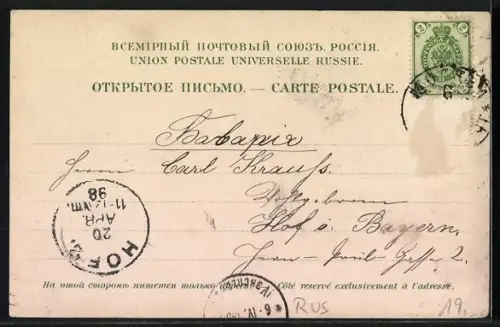 ВСЕМІРНЫЙ ПОЧТОВЫЙ СОЮЗЪ. РОССІЯ.
UNION POSTALE UNIVERSELLE RUSSIE.
ОТКРЫТОЕ ПИСЬМО. — CARTE POSTALE.
2
2
МОСКВА
6
Баварія
Herrn Carl Krauss
Wohlgeboren
Hof i. Bayern.
2.
HOF
20
APR.
98
На этой сторонѣ пишется только
Côté réservé exclusivement à l'adresse.
6·IV.
RUS
19.